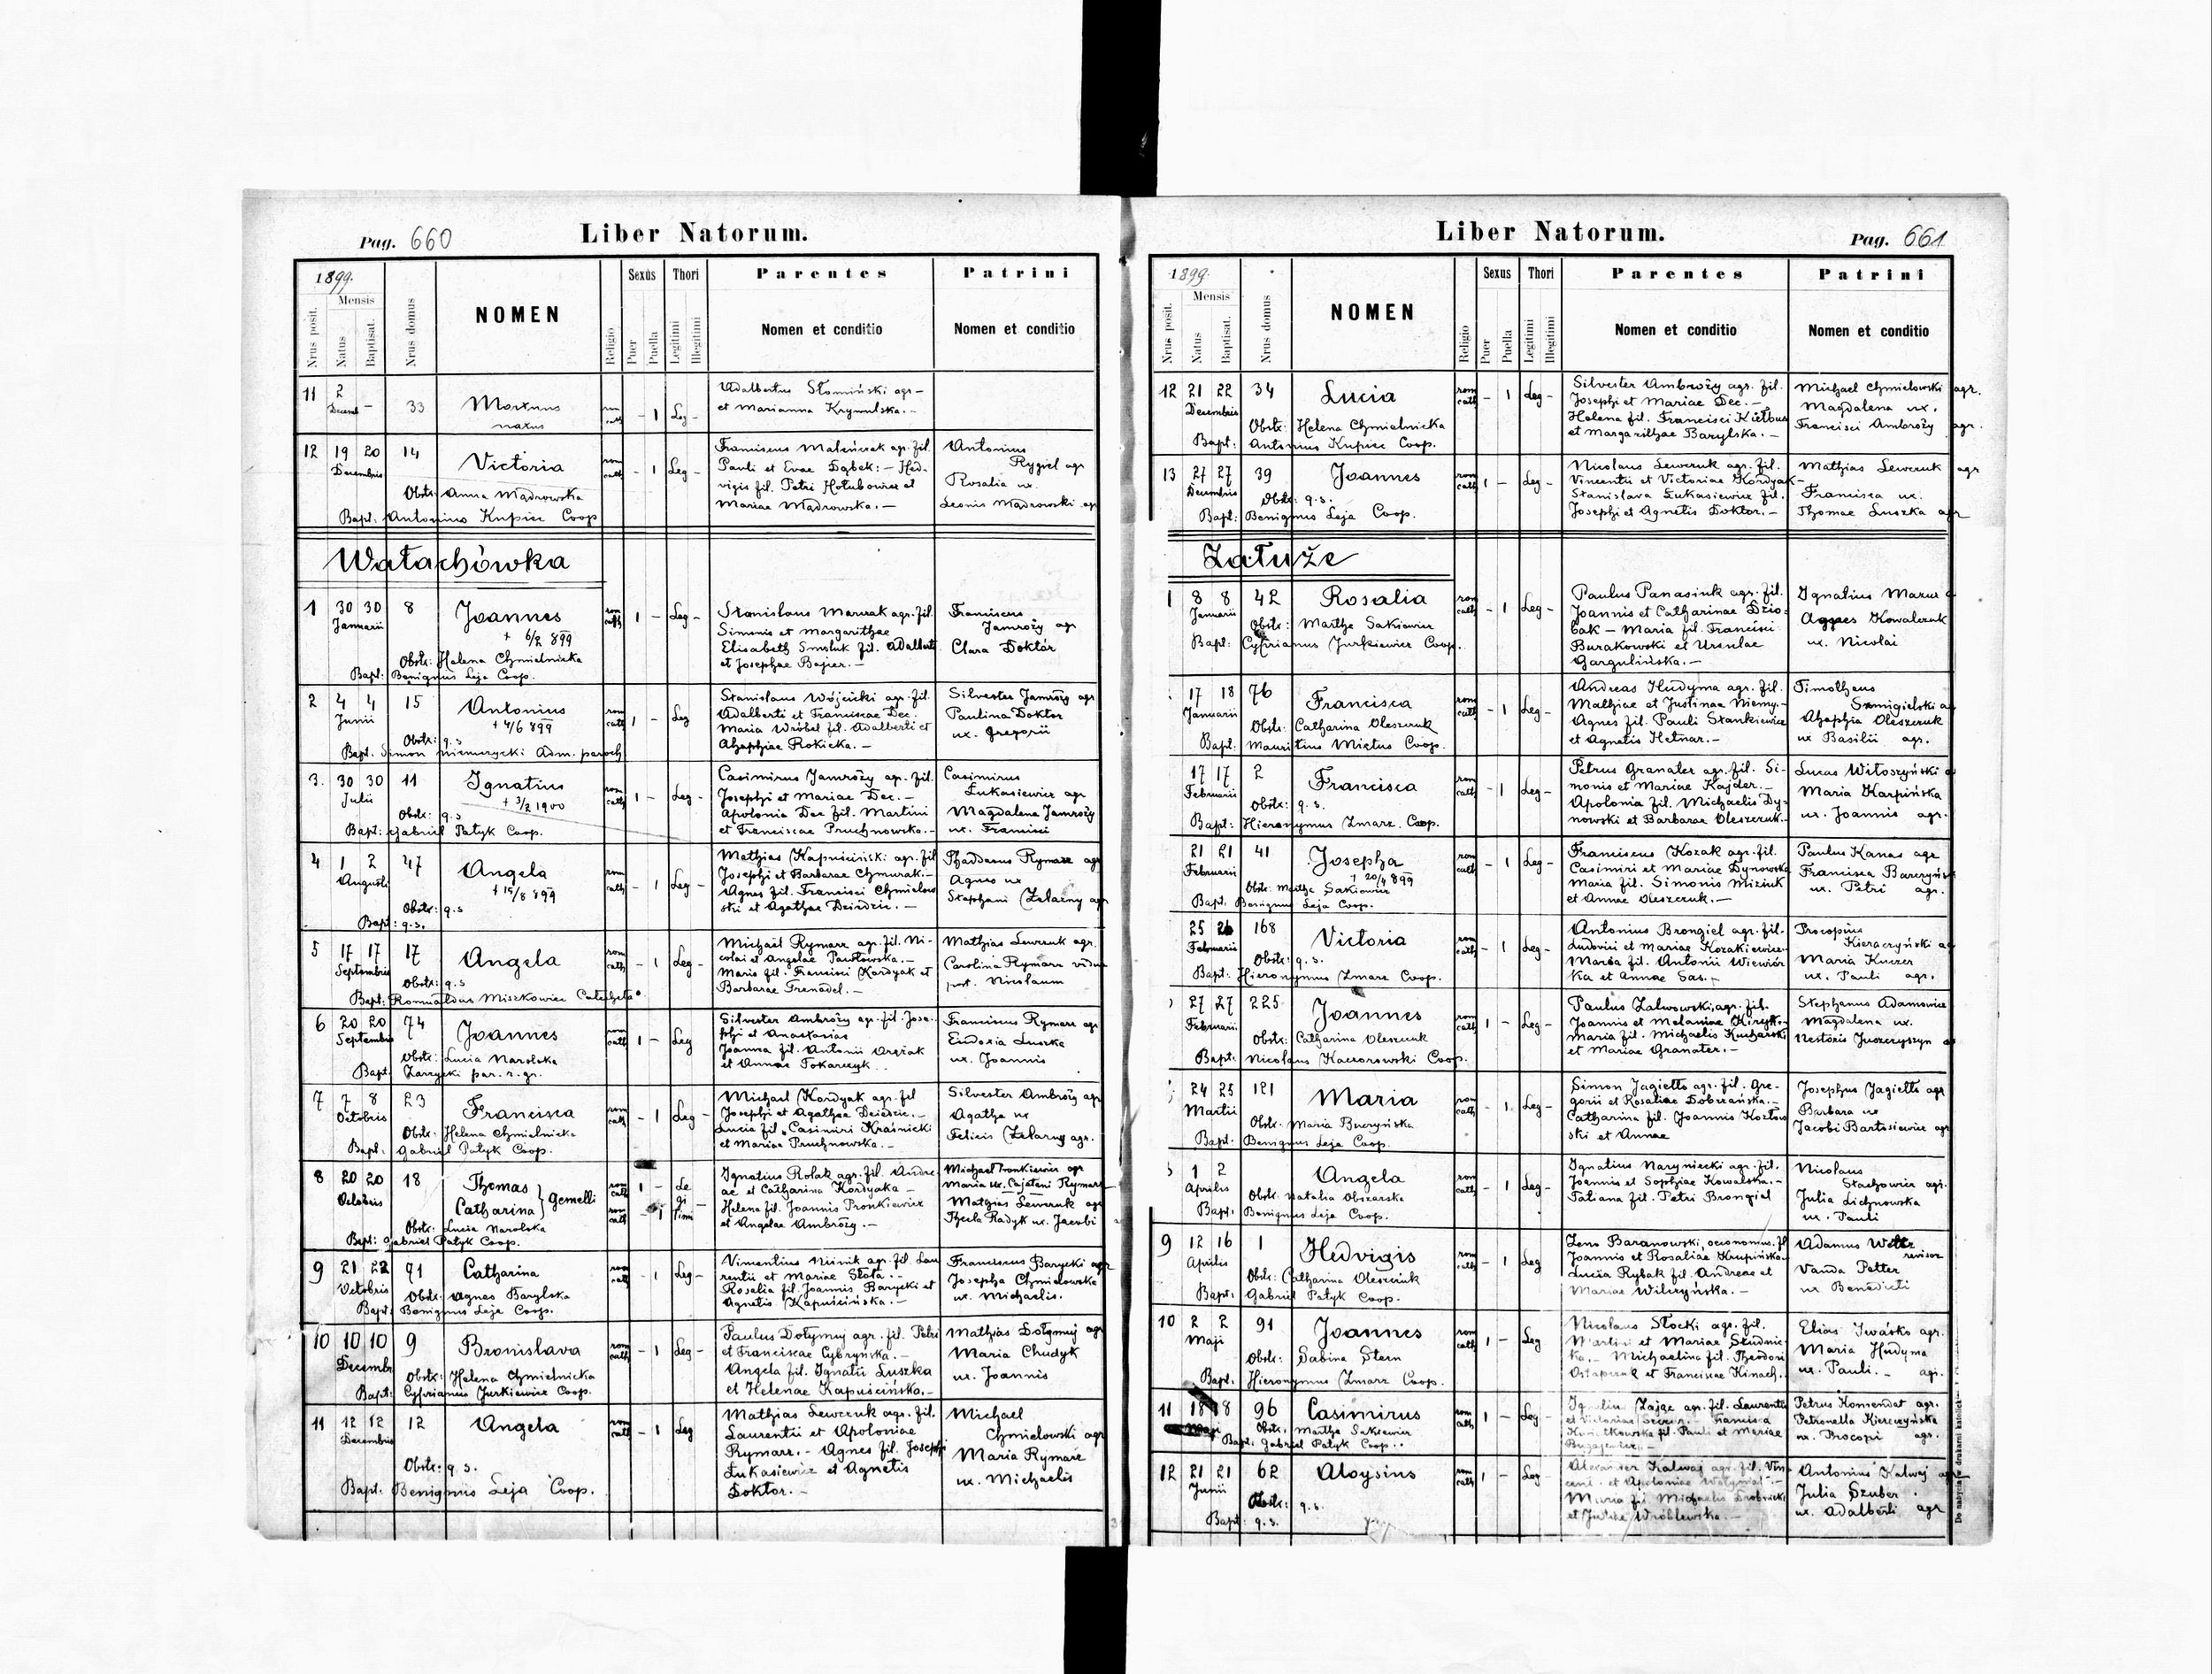 Pag. 660
Liber Natorum.
1899.
Nrus posit.
Mensis
Natus
Baptisat.
Nrus domus
NOMEN
Religio
Sexus
Puer
Puella
Thori
Legitimi
Illegitimi
Parentes
Nomen et conditio
Patrini
Nomen et conditio
11 2 Decemb – 33 Mortuus natus rom cath – 1 Leg –
Adalbertus Słomiński agr –
et Marianna Krymulska. –
12 19 20 Decembris 14 Victoria rom cath – 1 Leg –
Obstr: Anna Mądrowska
Bapt: Antonius Kupiec Coop
Franciscus Maleńczak agr. fil.
Pauli et Evae Dąbek: – Hed-
vigis fil. Petri Hołubowicz et
Mariae Mądrowska. –
Antonius
Rygiel agr
Rosalia ux.
Leonis Mądrowski agr
Wałachówka
1 30 30 Januarii 8 Joannes rom cath 1 – Leg –
+ 6/2 899
Obstr: Helena Chmielnicka
Bapt: Benignus Leja Coop.
Stanislaus Marczak agr. fil.
Simonis et Margarithae
Elisabeth Smoluk fil. Adalberti
et Josephae Bajier. –
Franciscus
Jamroży agr
Clara Doktór
2 4 4 Junii 15 Antonius rom cath 1 – Leg
+ 4/6 899
Obstr: q. s
Bapt. Simon Niemczycki Adm. paroch
Stanislaus Wójcicki agr. fil.
Adalberti et Franciscae Dec.
Maria Wróbel fil. Adalberti et
Ahaphiae Rokicka. –
Silvester Jamroży agr
Paulina Doktor
ux. Gregorii
3. 30 30 Julii 11 Ignatius rom cath 1 – Leg –
+ 3/2 1900
Obstr: q. s
Bapt: Gabriel Patyk Coop.
Casimirus Jamroży agr. fil.
Josephi et Mariae Dec. –
Apolonia Dec fil. Martini
et Franciscae Pruchnowska. –
Casimirus
Łukasiewicz agr
Magdalena Jamroży
ux. Francisci
4 1 2 Augusti 47 Angela rom cath – 1 Leg –
+ 15/8 899
Obstr: q. s
Bapt: q. s.
Mathias Kapuściński agr. fil
Josephi et Barbarae Chmurak. –
Agnes fil. Francisci Chmielow
ski et Agathae Dziedzic. –
Thaddaeus Rymarz agr
Agnes ux
Stephani Żelazny agr
5 17 17 Septembris 17 Angela rom cath – 1 Leg –
Obstr: q. s
Bapt: Romualdus Miszkowicz Catecheta
Michaël Rymarz agr. fil. Ni-
colai et Angelae Pawłowska. –
Maria fil. Francisci Kordyak et
Barbarae Trenadel. –
Mathias Lewczuk agr.
Carolina Rymarz vidua
post. Nicolaum
6 20 20 Septembris 74 Joannes rom cath 1 – Leg
Obstr: Lucia Narolska
Bapt: Zarzycki par. r. gr.
Silvester Ambroży agr. fil. Jose-
phi et Anastasiae
Joanna fil. Antonii
et Annae Tokarczyk
Franciscus Rymarz agr
Eudoxia Luszka
ux. Joannis
7 7 8 Octobris 23 Francisca rom cath – 1 Leg –
Obstr: Helena Chmielnicka
Bapt: Gabriel Patyk Coop.
Michael Kordyak agr. fil
Josephi et Agathae Dziedzic. –
Lucia fil. Casimiri Kraśnicki
et Mariae Pruchnowska. –
Silvester Ambroży agr
Agatha ux
Felicis Żelazny agr.
8 20 20 Octobris 18 Thomas
Catharina } Gemelli
rom cath 1 – Legi
rom cath – 1 timi
Obstr: Lucia Narolska
Bapt: Gabriel Patyk Coop.
Ignatius Rolak agr. fil. Andre
ae et Catharina Kordyaka –
Helena fil. Joannis Pronkiewicz
et Angelae Ambroży. –
Michael Pronkiewicz agr
Maria ux. Cajetani Rymarz
Mathias Lewczuk agr
Thecla Radyk ux. Jacobi
9 21 22 Octobris 91 Catharina rom cath – 1 Leg –
Obstr: Agnes Barylska
Bapt: Benignus Leja Coop.
Vincentius agr. fil Lau
rentii et Mariae Słota. –
Rosalia fil. Joannis Barycki et
Agnetis Kapuścińska. –
Franciscus Barycki agr
Josepha Chmielowska
ux. Michaelis.
10 10 10 Decembr 9 Bronislava rom cath – 1 Leg –
Obstr: Helena Chmielnicka
Bapt: Cyprianus Jurkiewicz Coop.
Paulus Dołymuj agr. fil. Petri
et Franciscae Cybryńska. –
Angela fil. Ignatii Luszka
et Helenae Kapuścińska. –
Mathias Dołymuj agr
Maria Chudyk
ux. Joannis
11 12 12 Decembris 12 Angela rom cath – 1 Leg
Obstr: q. s.
Bapt: Benignus Leja Coop.
Mathias Lewczuk agr. fil.
Laurentii et Apoloniae
Rymarz. – Agnes fil. Josephi
Łukasiewicz et Agnetis
Doktor. –
Michael
Chmielowski agr
Maria Rymarz
ux. Michaelis
Liber Natorum.
Pag. 661
1899.
Nrus posit.
Mensis
Natus
Baptisat.
Nrus domus
NOMEN
Religio
Sexus
Puer
Puella
Thori
Legitimi
Illegitimi
Parentes
Nomen et conditio
Patrini
Nomen et conditio
12 21 22 Decembris 34 Lucia rom cath – 1 Leg –
Obstr: Helena Chmielnicka
Bapt: Antonius Kupiec Coop.
Silvester Ambroży agr. fil.
Josephi et Mariae Dec. –
Helena fil. Francisci Kiełbus
et Margarithae Barylska. –
Michael Chmielowski agr.
Magdalena ux.
Francisci Ambroży agr.
13 27 27 Decembris 39 Joannes rom cath 1 – Leg –
Obstr: q. s.
Bapt: Benignus Leja Coop.
Nicolaus Lewczuk agr. fil.
Vincentii et Victoriae Kordyak –
Stanislava Łukasiewicz fil.
Josephi et Agnetis Doktor. –
Mathias Lewczuk agr
Francisca ux.
Thomae Luszka agr
Załuże
1 8 8 Januarii 42 Rosalia rom cath – 1 Leg –
Obstr: Martha Sakiewicz
Bapt: Cyprianus Jurkiewicz Coop.
Paulus Panasiuk agr. fil.
Joannis et Catharinae Dzio-
bak – Maria fil. Francisci
Burakowski et Ursulae
Gargulińska. –
Ignatius Mazur
Agnes Kowalczuk
ux. Nicolai
17 18 Januarii 76 Francisca rom cath – 1 Leg –
Obstr: Catharina Oleszczuk
Bapt: Mauritius Miętus Coop.
Andreas Hudyma agr. fil.
Mathiae et Justinae Niemy. –
Agnes fil. Pauli Stankiewicz
et Agnetis Hetnar. –
Timotheus
Szmigielski agr
Ahaphia Oleszczuk
ux Basilii agr.
17 17 Februarii 2 Francisca rom cath – 1 Leg –
Obstr: q. s.
Bapt: Hieronymus Zmarz Coop.
Petrus Granater agr. fil. Si-
monis et Mariae Kajder. –
Apolonia fil. Michaelis Dy-
nowski et Barbarae Oleszczuk. –
Lucas Witoszyński
Maria Karpińska
ux. Joannis agr.
21 21 Februarii 41 Josepha rom cath – 1 Leg –
+ 20/4 899
Obstr: Martha Sakiewicz
Bapt. Benignus Leja Coop.
Franciscus Kozak agr. fil.
Casimiri et Mariae Dynowska
Maria fil. Simonis Miziuk
et Annae Oleszczuk. –
Paulus Kanas agr
Francisca Barczyńs
ux. Petri agr.
25 26 Februarii 168 Victoria rom cath – 1 Leg –
Obstr: q. s.
Bapt: Hieronymus Zmarz Coop.
Antonius Brongiel agr. fil.
Ludovici et Mariae Kozakiewicz.
Maria fil. Antonii Wiewiór
ka et Annae Sas. –
Procopius
Kieraczyński agr
Maria Kuczer
ux. Pauli agr.
27 27 Februarii 225 Joannes rom cath 1 – Leg –
Obstr: Catharina Oleszczuk
Bapt: Nicolaus Kaczorowski Coop.
Paulus Zalwowski, agr. fil.
Joannis et Melaniae Kiryk. –
Maria fil. Michaelis Kucharski
et Mariae Granater. –
Stephanus Adamowicz
Magdalena ux.
Nestoris Juszczyszyn
24 25 Martii 121 Maria rom cath – 1. Leg –
Obstr: Maria Burczyńska
Bapt: Benignus Leja Coop.
Simon Jagiełło agr. fil. Gre-
gorii et Rosaliae Dobrzańska. –
Catharina fil. Joannis Kozłow
ski et Annae
Josephus Jagiełło agr
Barbara ux
Jacobi Bartosiewicz agr
1 2 Aprilis Angela rom cath – 1 Leg –
Obstr: Natalia Obszarska
Bapt: Benignus Leja Coop.
Ignatius Naryniecki agr. fil.
Joannis et Sophiae Kowalska. –
Tatiana fil. Petri Brongiel
Nicolaus
Stachowicz agr.
Julia Lichnowska
ux. Pauli
9 12 16 Aprilis 1 Hedvigis rom cath – 1 Leg
Obstr: Catharina Oleszczuk
Bapt: Gabriel Patyk Coop.
Zeno Baranowski, oeconomus. fil
Joannis et Rosaliae Krupińska. –
Lucia Rybak fil. Andreae et
Mariae Wilczyńska. –
Adamus
revisor
Vanda Petter
ux Benedicti
10 2 2 Maji 91 Joannes rom cath 1 – Leg
Obstr: Sabina Stern
Bapt: Hieronymus Zmarz Coop.
Nicolaus Stocki agr. fil.
Martini et Mariae Studnic
ka. – Michaelina fil. Theodori
Ostapczuk et Franciscae Kinach.
Elias Iwaśko agr.
Maria Hudyma
ux. Pauli. – agr.
11 18 18 Maji 96 Casimirus rom cath 1 – Leg –
Obstr. Martha Sakiewicz
Bapt: Gabriel Patyk Coop.
Ignatius Zając agr. fil. Laurentii
et Victoriae Francisca
fil. Pauli et Mariae
Petrus Komendat agr.
Petronella Kierczyńska
ux. Procopi agr.
12 21 21 Junii 62 Aloysius rom cath 1 – Leg –
Obstr: q. s.
Bapt: q. s.
Alexander Kalwaj agr. fil. Vin
centi et Apoloniae
Maria fil Michaelis Drobnicki
et Juliae Wróblewska. –
Antonius Kalwaj agr
Julia Szuber
ux. Adalberti agr